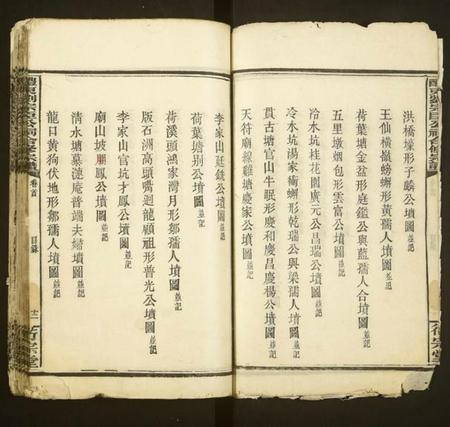 洪橋壕形子麟公墳圖並記
王仙橫嶺螃蟹形黃孺人墳圖並記
荷葉塘金盆形庭鑑公與藍孺人合墳圖並記
五里墩烟包形雲富公墳圖並記
冷水坑桂花園廣元公昌瑞公墳圖並記
冷水坑湯家衝蠏形乾瑞公與梁孺人墳圖並記
貫古塘官山牛眠形慶和慶昌慶楊公墳圖並記
天符廟線雞塘慶家公墳圖並記
李家山廷錢公墳圖並記
荷葉塘別公墳圖並記
荷溪頭鴻家灣月形鄒孺人墳圖並記
版石洲高頭嘴迴龍顧祖形普光公墳圖並記
李家山官坑才鳳公墳圖並記
廟山坡鳳公墳圖並記
清水塘墓漣庵普端夫婦墳圖並記
龍口黃狗伏地形鄒孺人墳圖並記
卷首
目錄